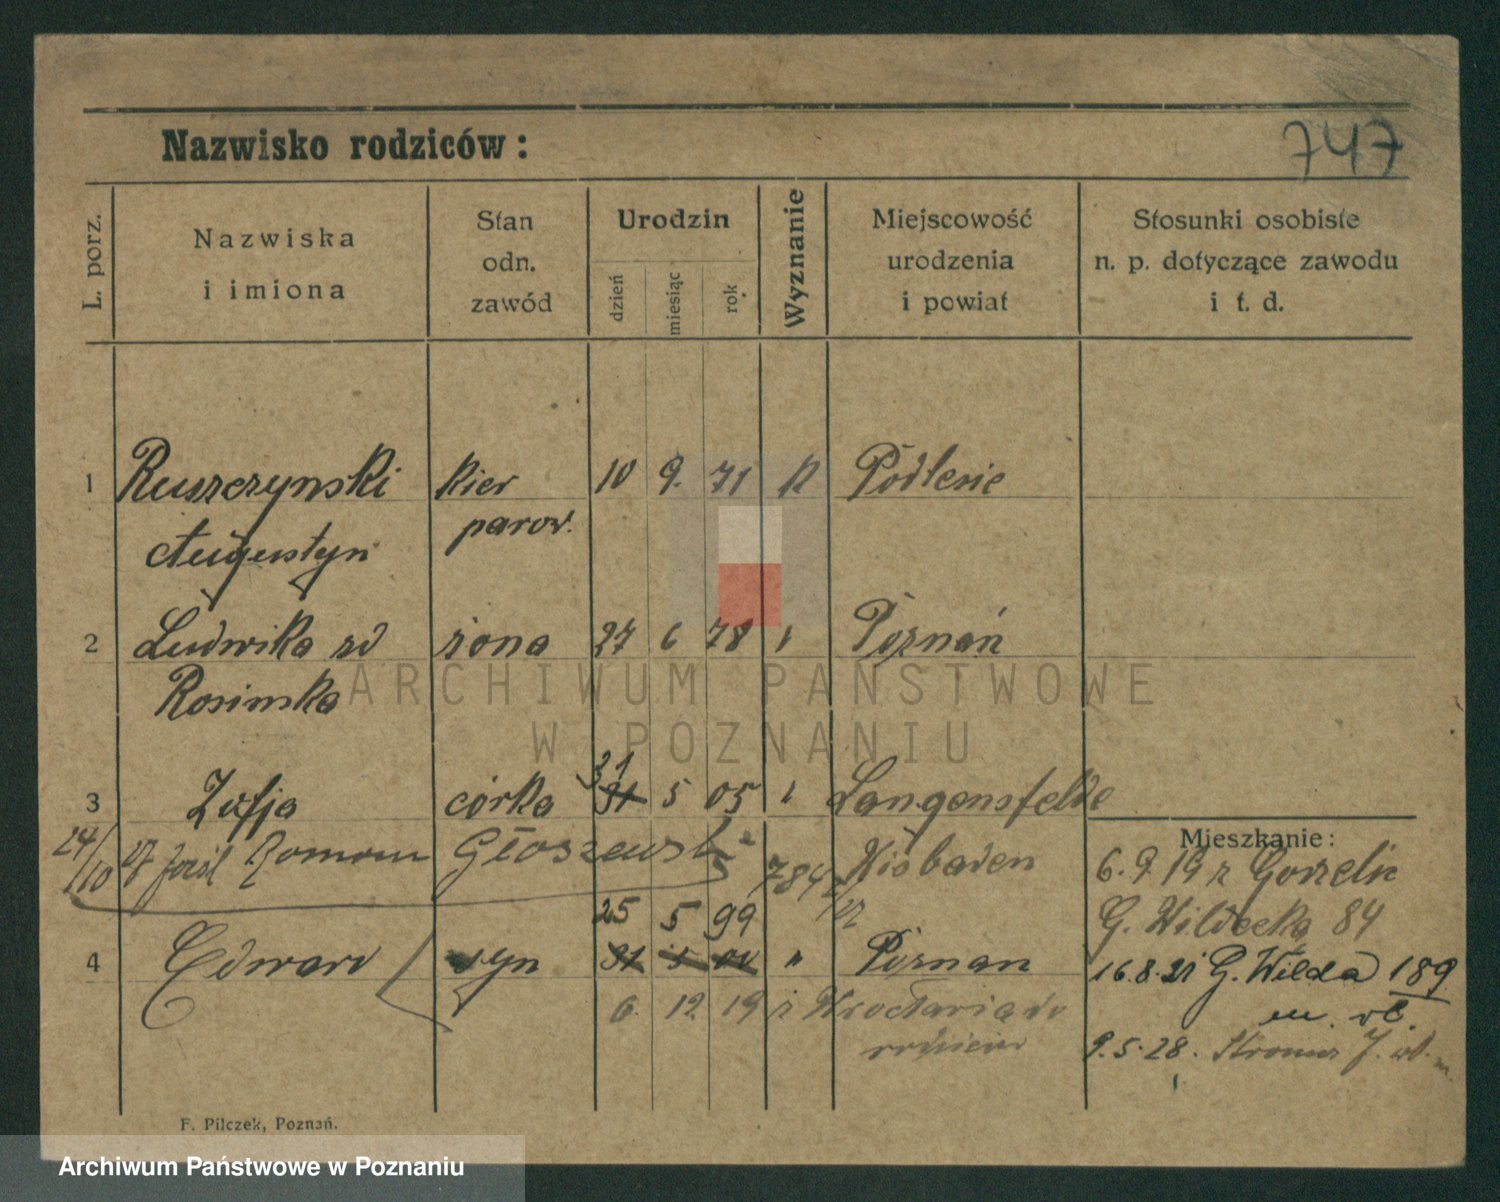 747
Nazwisko rodziców:
L. porz. Nazwiska i imiona Stan odn. zawód Urodzin dzień miesiąc rok Wyznanie Miejscowość urodzenia i powiat Stosunki osobiste n. p. dotyczące zawodu i t. d.
1 Ruszczynski kier 10 9. 71 k Podlesie
Augustyn parow.
2 Ludwika żona 27 6 78 " Poznań
Rosinska
ARCHIWUM PAŃSTWOWE
W POZNANIU
31
3 Zofja córka 31 5 05 " Langensfelde
Mieszkanie:
24/10 27 Roman Głoszewski 784 Wisbaden 6.9.19 z Gorzelic
25 5 99 G. Wildecka 84
4 Edward syn 31 5 01 " Poznan 16.8.21 G. Wilda 189
6. 12 19 z Wrocławia do m. wł.
rodziców 9.5.28. Stroma 7. wł. m.
F. Pilczek, Poznań.
Archiwum Państwowe w Poznaniu